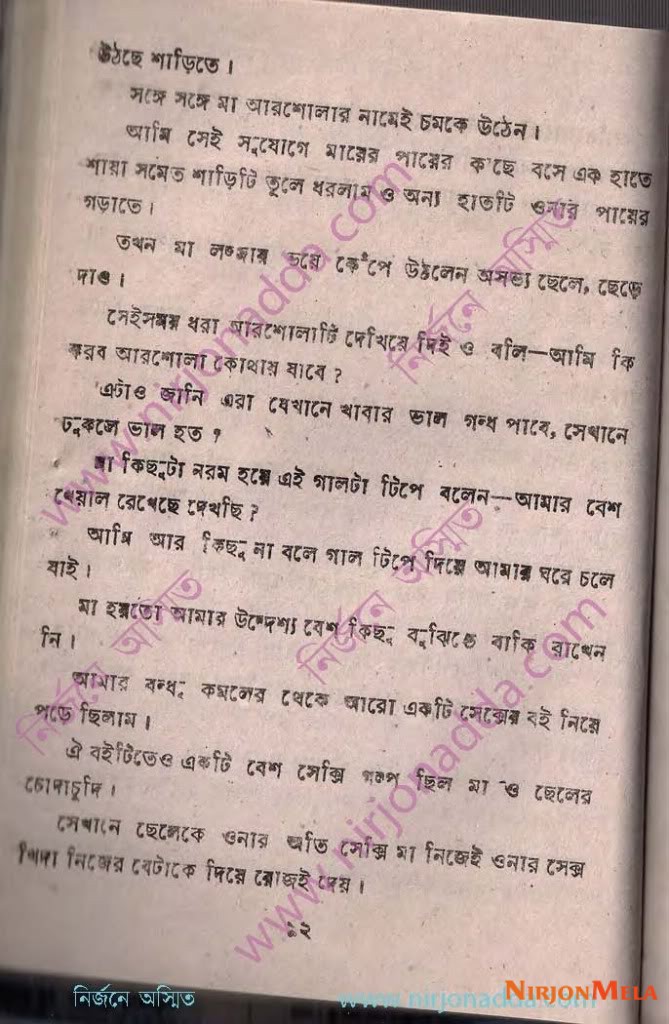 উঠছে শাড়িতে।
সঙ্গে সঙ্গে মা আরশোলার নামেই চমকে উঠেন।
আমি সেই সুযোগে মায়ের পায়ের কাছে বসে এক হাতে
শায়া সমেত শাড়িটি তুলে ধরলাম ও অন্য হাতটি ওনার পায়ের
গড়াতে।
তখন মা লজ্জার ভয়ে কেঁপে উঠলেন অসভ্য ছেলে, ছেড়ে
দাও।
সেইসময় ধরা আরশোলাটি দেখিয়ে দিই ও বলি—আমি কি
করব আরশোলা কোথায় যাবে?
এটাও জানি এরা যেখানে খাবার ভাল গন্ধ পাবে, সেখানে
ঢুকলে ভাল হত?
মা কিছুটা নরম হয়ে এই গালটা টিপে বলেন—আমার বেশ
খেয়াল রেখেছে দেখছি?
আমি আর কিছু না বলে গাল টিপে দিয়ে আমার ঘরে চলে
যাই।
মা হয়তো আমার উদ্দেশ্য বেশ কিছু বুঝিতে বাকি রাখেন
নি।
আমার বন্ধু কমলের থেকে আরো একটি সেক্সের বই নিয়ে
পড়ে ছিলাম।
ঐ বইটিতেও একটি বেশ সেক্সি গল্প ছিল মা ও ছেলের
চোদাচুদি।
সেখানে ছেলেকে ওনার অতি সেক্সি মা নিজেই ওনার সেক্স
খিদা নিজের বেটাকে দিয়ে রোজই দেয়।
নির্জনে অস্মিত
www.nirjonadda.com
NIRJONMELA